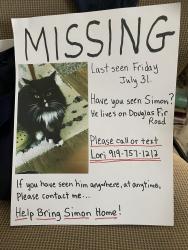 MISSING
Last seen Friday
July 31.
Have you seen Simon?
He lives on Douglas Fir
Road
Please call or text
Lori 919-757-1212
If you have seen him anywhere, at anytime,
Please contact me...
Help Bring Simon Home!